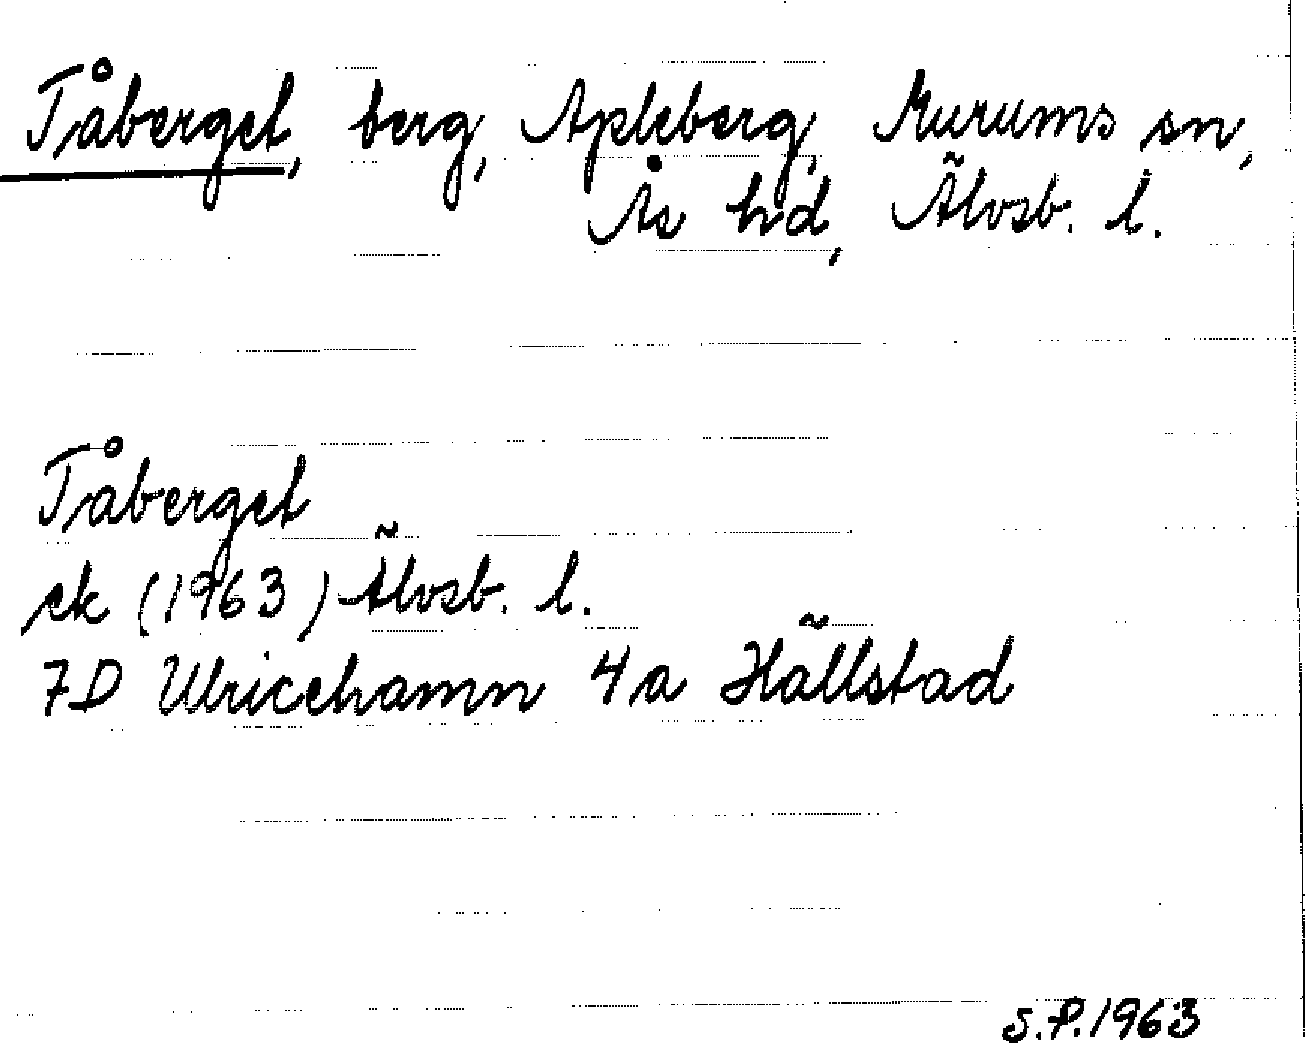 Tåberget, berg, Apleberg, Murums sn,
Ås hd, Älvsb. l.
Tåberget
ek (1963) Älvsb. l.
7D Ulricehamn 4a Hällstad
S.P. 1963